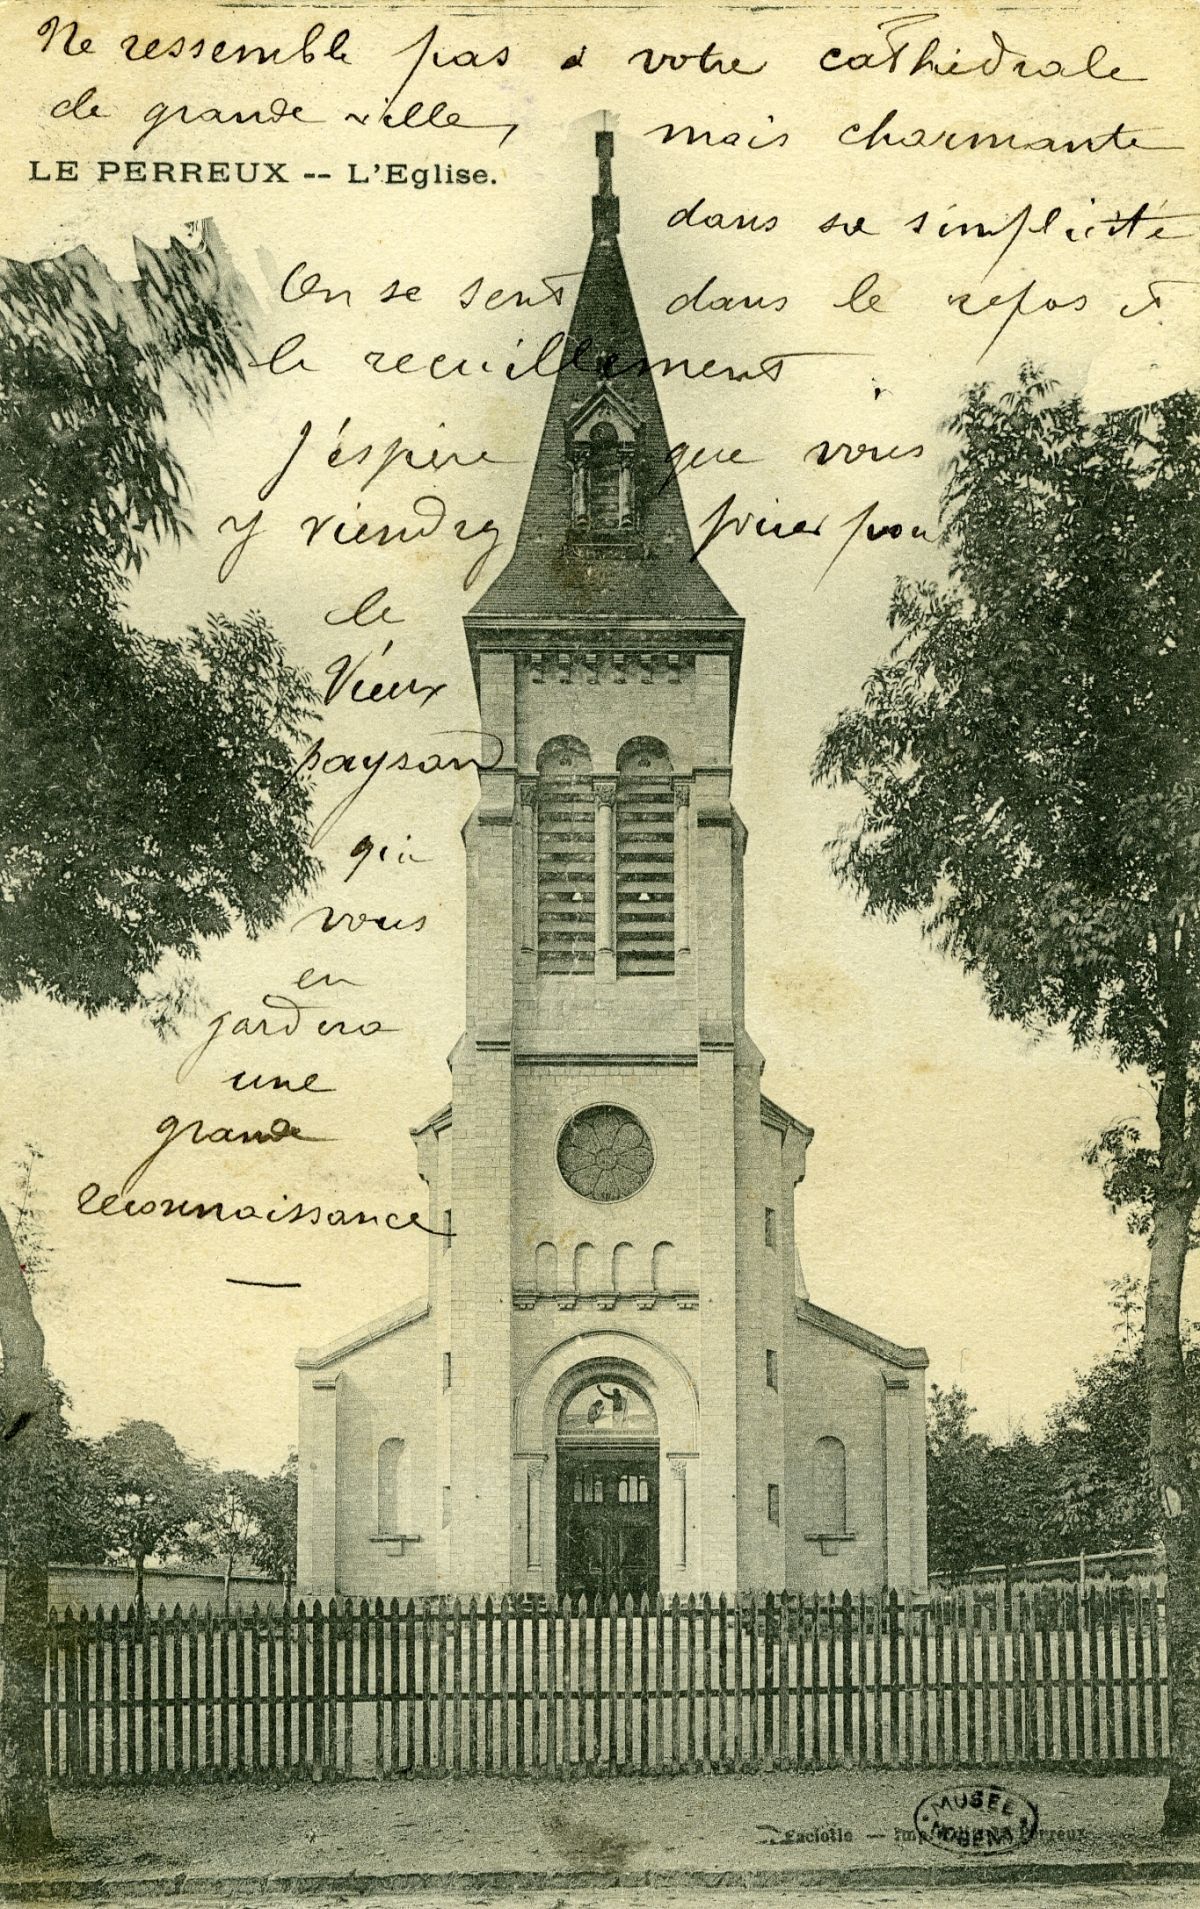 Ne ressemble pas à votre cathédrale
de grande ville, mais charmante
LE PERREUX -- L'Eglise.
dans sa simplicité
On se sent dans le repos et
le recueillement
J'éspère que vous
y viendrez prier pour
le
Vieux
paysan
qui
vous
en
gardera
une
grande
reconnaissance
MUSÉE
Faciolle — Imp. Perreux